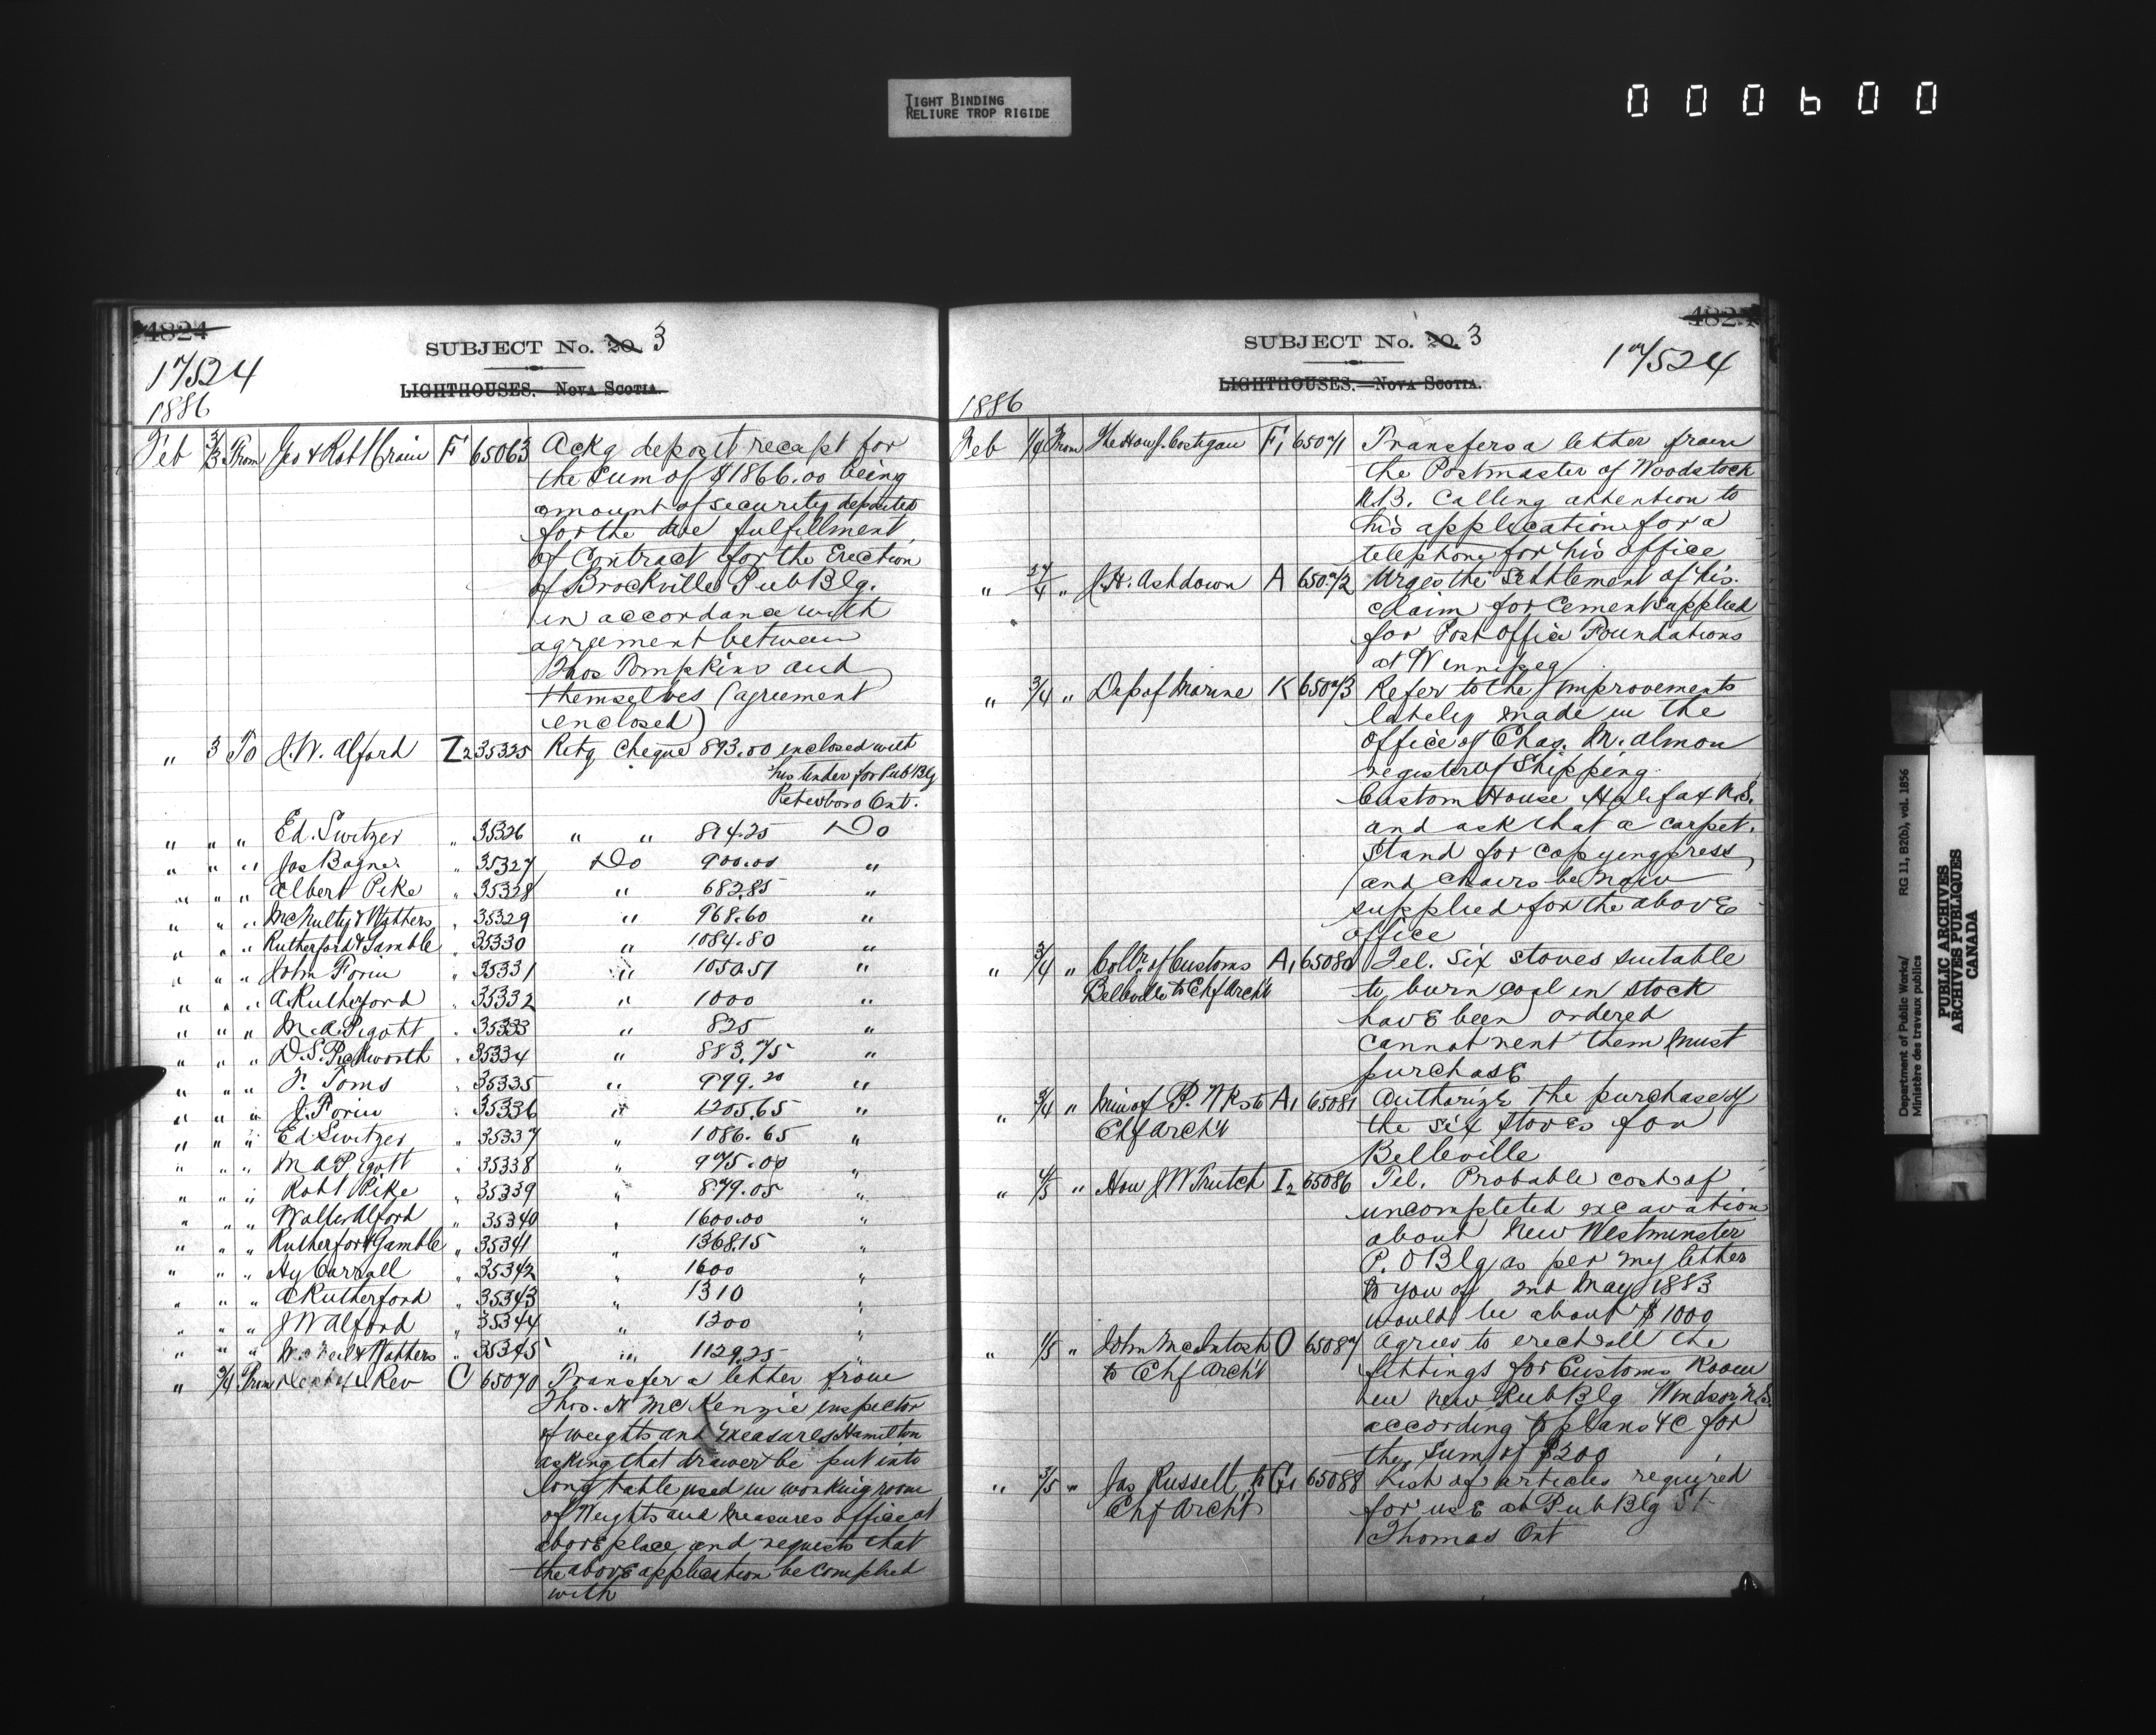 TIGHT BINDING
RELIURE TROP RIGIDE
000600
4824
SUBJECT No. 20. 3
17524
LIGHTHOUSES. NOVA SCOTIA.
1886
Feb 3/3 From Geo & Robt Crain F 65063 Ackg deposit receipt for
the Sum of $1866.00 being
amount of security deposited
for the due fulfillment
of Contract for the Erection
of Brockville Pub Blg.
in accordance with
agreement between
Thos Tompkins and
themselves (agreement
enclosed)
" 3 To J.W. Alford Z2 35325 Retg Cheque 893.00 enclosed with
his tender for Pub Blg
Peterboro Ont.
" " " Ed. Switzer " 35326 " " 874.25 Do
" " " Jas Bogner " 35327 Do 900.00 "
" " " Albert Pike " 35328 " 682.85 "
" " " McNulty & Watters " 35329 " 968.60 "
" " " Rutherford & Gamble " 35330 " 1084.80 "
" " " John Forin " 35331 " 1050.51 "
" " " A Rutherford " 35332 " 1000 "
" " " M.A. Pigott " 35333 " 825 "
" " " D.S. Pickworth " 35334 " 883.75 "
" " " F. Toms " 35335 " 999.20 "
" " " J. Forin " 35336 " 1205.65 "
" " " Ed Switzer " 35337 " 1086.65 "
" " " M A Pigott " 35338 " 975.00 "
" " " Robt Pike " 35339 " 879.05 "
" " " Walter Alford " 35340 " 1600.00 "
" " " Rutherford & Gamble " 35341 " 1368.15 "
" " " Hy Carroll " 35342 " 1600 "
" " " A Rutherford " 35343 " 1310 "
" " " J W Alford " 35344 " 1200 "
" " " & Watters " 35345 " 1129.25
" 3/4 From Rev C 65070 Transfer a letter from
Thos. H McKenzie inspector
of weights and Measures Hamilton
asking that drawer be put into
long table used in working room
of Weights and Measures office at
above place and requests that
the above application be complied
with
SUBJECT No. 20. 3
17524
LIGHTHOUSES.—NOVA SCOTIA.
1886
Feb 1/4 From The Hon J. Costigan F1 65071 Transfers a letter from
the Postmaster of Woodstock
N.B. Calling attention to
his application for a
telephone for his office
" 27/4 " J.H. Ashdown A 65072 Urges the settlement of his
claim for Cement supplied
for Post Office Foundations
at Winnipeg
" 3/4 " Dep of Marine K 65073 Refer to the improvements
lately made in the
office of Chas. M. Almon
register of Shipping
Custom House Halifax N.S.
and ask that a carpet,
Stand for copying press,
and chairs be now
supplied for the above
office
" 3/4 " Collr. of Customs A1 65080 Tel. Six stoves suitable
Belleville to Chf Archt
to burn coal in stock
have been ordered
cannot rent them must
purchase
" 3/4 " Min of P. Wks to A1 65081 Authorize the purchase of
Chf Archt the six stoves for
Belleville
" 4/5 " Hon J W Trutch I2 65086 Tel. Probable cost of
uncompleted excavation
about New Westminster
P. O Blg as per my letter
to you of 2nd May 1883
would be about $1000
" 1/5 " John McIntosh O 65087 Agrees to erect all the
to Chf Archt fittings for Customs Room
in new Pub Blg Windsor N.S.
according to plans &c for
the Sum of $200
" 3/5 " Jas Russell to G1 65088 List of articles required
Chf Archt for use at Pub Blg St
Thomas Ont
Department of Public Works/ RG 11, B2(b), vol. 1856
Ministère des travaux publics
PUBLIC ARCHIVES
ARCHIVES PUBLIQUES
CANADA